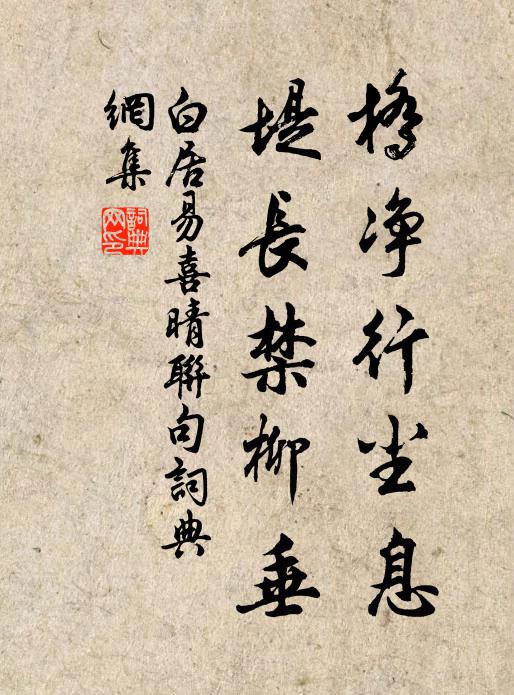 橋淨行塵息
堤長禁柳垂
白居易喜晴聯句詞典
網集
詞典
網印